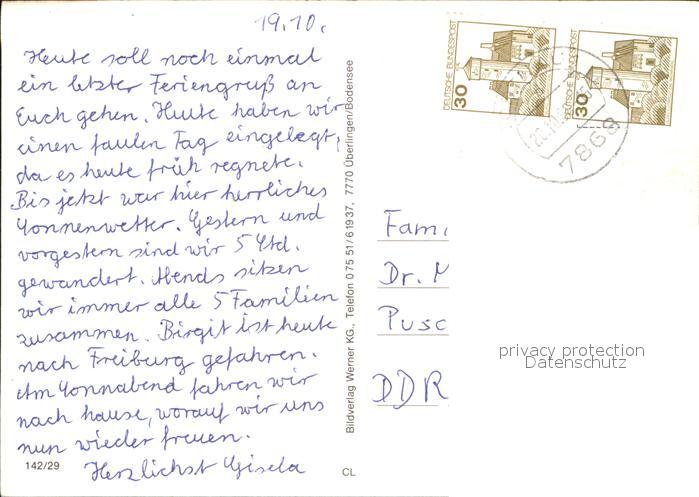 19.10.
Heute soll noch einmal
ein letzter Feriengruß an
Euch gehen. Heute haben wir
einen faulen Tag eingelegt,
da es heute früh regnete.
Bis jetzt war hier herrliches
Sonnenwetter. Gestern und
vorgestern sind wir 5 Std.
gewandert. Abends sitzen
wir immer alle 5 Familien
zusammen. Birgit ist heute
nach Freiburg gefahren.
Am Sonnabend fahren wir
nach hause, worauf wir uns
nun wieder freuen.
Herzlichst Gisela
142/29
CL
Bildverlag Werner KG., Telefon 0 75 51/6 19 37, 7770 Überlingen/Bodensee
DEUTSCHE BUNDESPOST
30
DEUTSCHE BUNDESPOST
30
7868
Fami
Dr. M
Pusc
DDR
privacy protection
Datenschutz